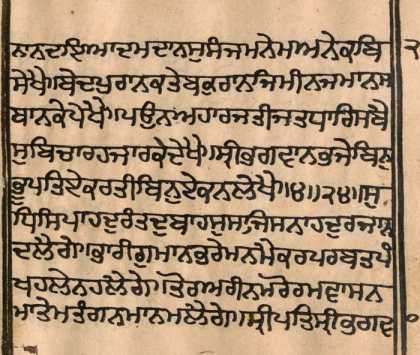 ਨਾਨਦਇਆਦਮਦਾਨਸੁਸੰਜਮਨੇਮਅਨੇਕਬਿ
ਸੇਖੈ॥ਬੇਦਪੁਰਾਨਕਤੇਬਕੁਰਾਨਜਿਮੀਨਜਮਾਨਸ
ਬਾਨਕੇਪੇਖੈ॥ਪਉਨਅਹਾਰਜਤੀਜਤਧਾਰਿਸਬੈ
ਸੁਬਿਚਾਰਹਜਾਰਕੇਦੇਖੈ॥ਸ੍ਰੀਭਗਵਾਨਭਜੇਬਿਨੁ
ਭੂਪਤਿਏਕਰਤੀਬਿਨੁਏਕਨਲੇਖੈ॥੪॥੨੪॥ਸੁ
ਧਿਸਿਪਾਹਦੁਰੰਤਦੁਬਾਹਸੁਸਾਜਿਸਨਾਹਦੁਰਜਾਨ
ਦਲੈਗੇ॥ਭਾਰੀਗੁਮਾਨਭਰੇਮਨਮੈਕਰਪਰਬਤਪੰ
ਖਹਲੇਨਹਲੈਗੇ॥ਤੋਰਿਅਰੀਨਮਰੋਰਿਮਵਾਸਨ
ਮਾਤੇਮਤੰਗਨਮਾਨਮਲੈਗੇ॥ਸ੍ਰੀਪਤਿਸ੍ਰੀਭਗਵ